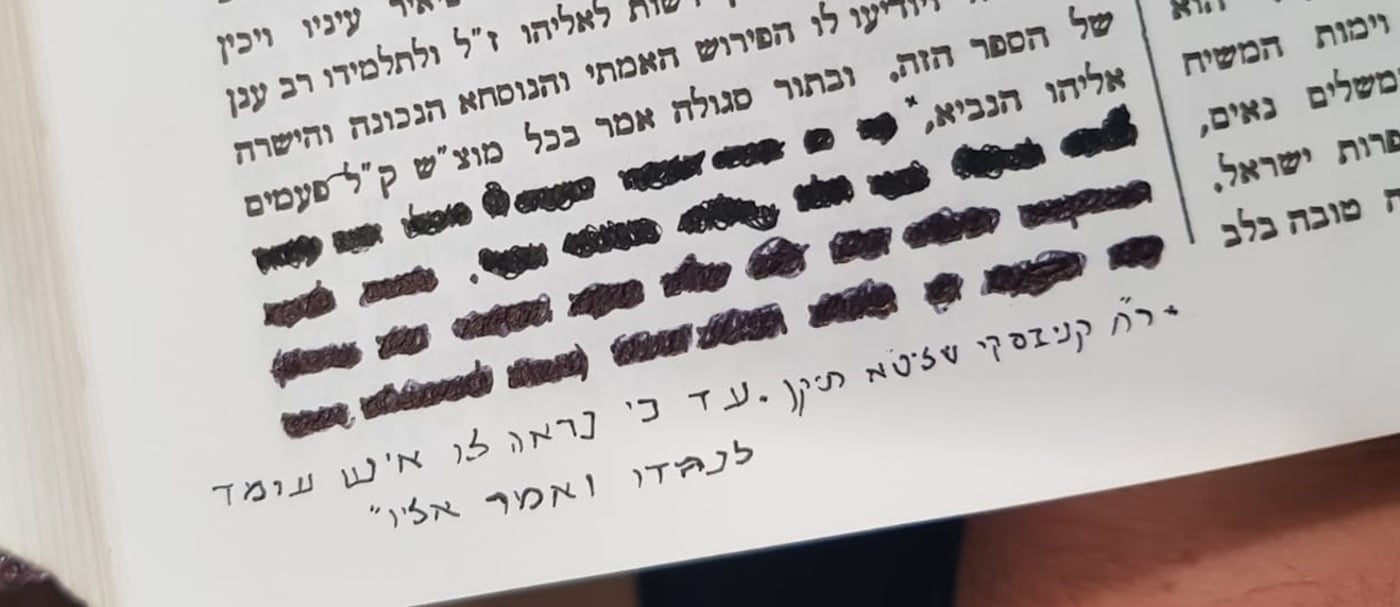 הוא
וימות המשיח
משלים נאים,
פרות ישראל.
טובה בלב
עיניו ויכין
לאליהו ז"ל ולתלמידו רב ענן
ויודיעו לו הפירוש האמתי והנוסחא הנכונה והישרה
של הספר הזה. ובתור סגולה אמר בכל מוצ"ש ק"ל פעמים
אליהו הנביא,*
* ר"ח קניבסקי שליט"א תיקן. עד כי נראה לו איש עומד
לנגדו ואמר אליו"